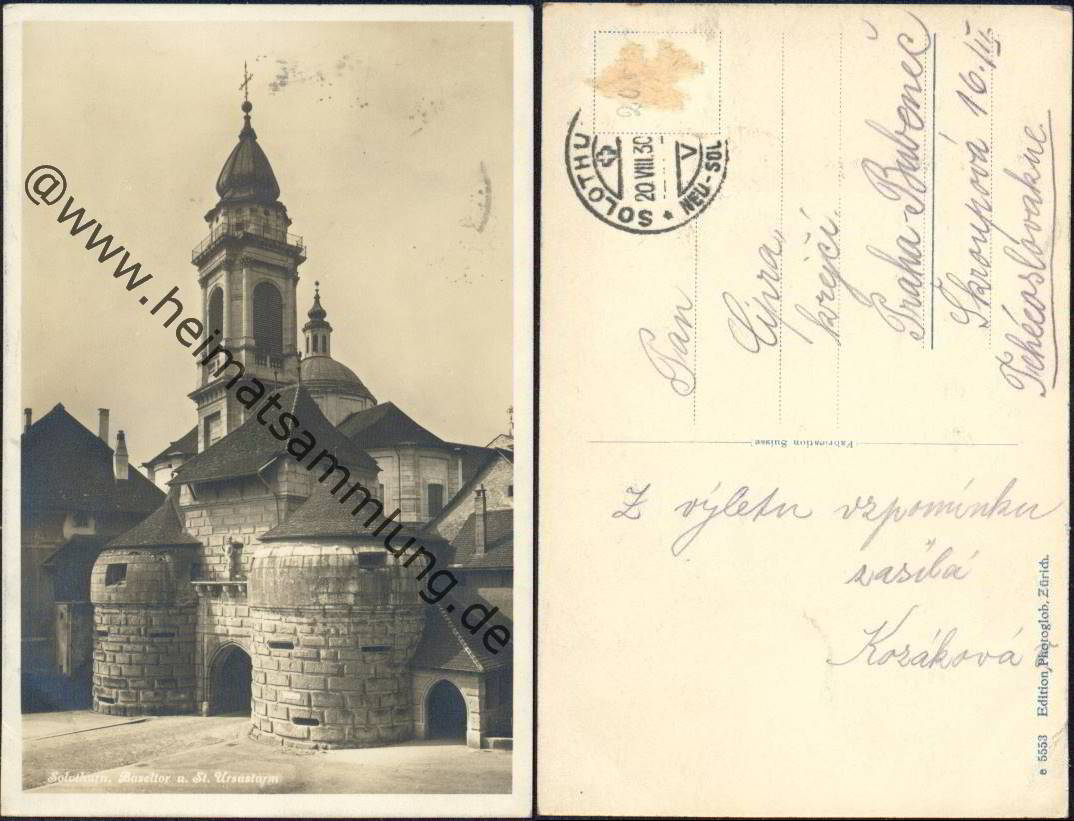 @www.heimatsammlung.de
Solothurn. Baseltor u. St. Ursusturm
SOLOTHU
20.VIII.30
V
NEU-SOL
Pan
krejčí
Praha-Bubeneč
Škroupová 16./III
Tchécoslóvakue
Fabrication Suisse
Z výletu vzpomínku
zasílá
Kozáková
e 5553 Edition Photoglob, Zürich.